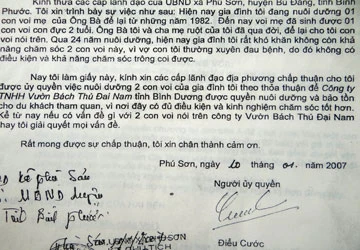 Kính các cấp lãnh đạo của UBND xã Phú Sơn, huyện Bù Đăng, tỉnh Bình
Phước. Tôi xin trình bày sự việc như sau: Hiện nay gia đình tôi đang nuôi dưỡng 01
con voi mẹ của Ông Bà để lại từ những năm 1982. Đến nay voi mẹ đã sinh được 01
con voi con đực 2 tuổi. Ông Bà tôi và cha mẹ ruột của tôi đã qua đời, để lại cho tôi con
voi nói trên. Qua 24 năm nuôi dưỡng, hiện nay gia đình tôi rất khó khăn không còn khả
năng chăm sóc 2 con voi này, vì vợ con tôi thường xuyên đau bệnh, do đó không có
điều kiện và khả năng chăm sóc trông coi được.
Nay tôi làm giấy này, kính xin các cấp lãnh đạo địa phương chấp thuận cho tôi
được ủy quyền việc nuôi dưỡng 2 con voi của gia đình tôi theo thỏa thuận để Công ty
TNHH Vườn Bách Thú Đại Nam tỉnh Bình Dương được quyền nuôi dưỡng và bảo tồn
cho du khách tham quan, vì nơi đây có đủ điều kiện và kinh nghiệm chăm sóc tốt hơn.
Kể từ nay nếu có vấn đề gì với 2 con voi nói trên công ty Vườn Bách Thú Đại Nam
hay tôi giải quyết mọi vấn đề.
Rất mong được sự chấp thuận, tôi xin chân thành cảm ơn.
Phú Sơn, ngày 10 tháng 01 2007
Người ủy quyền
Phú Sơn
UBND
Phước
Điểu Cước